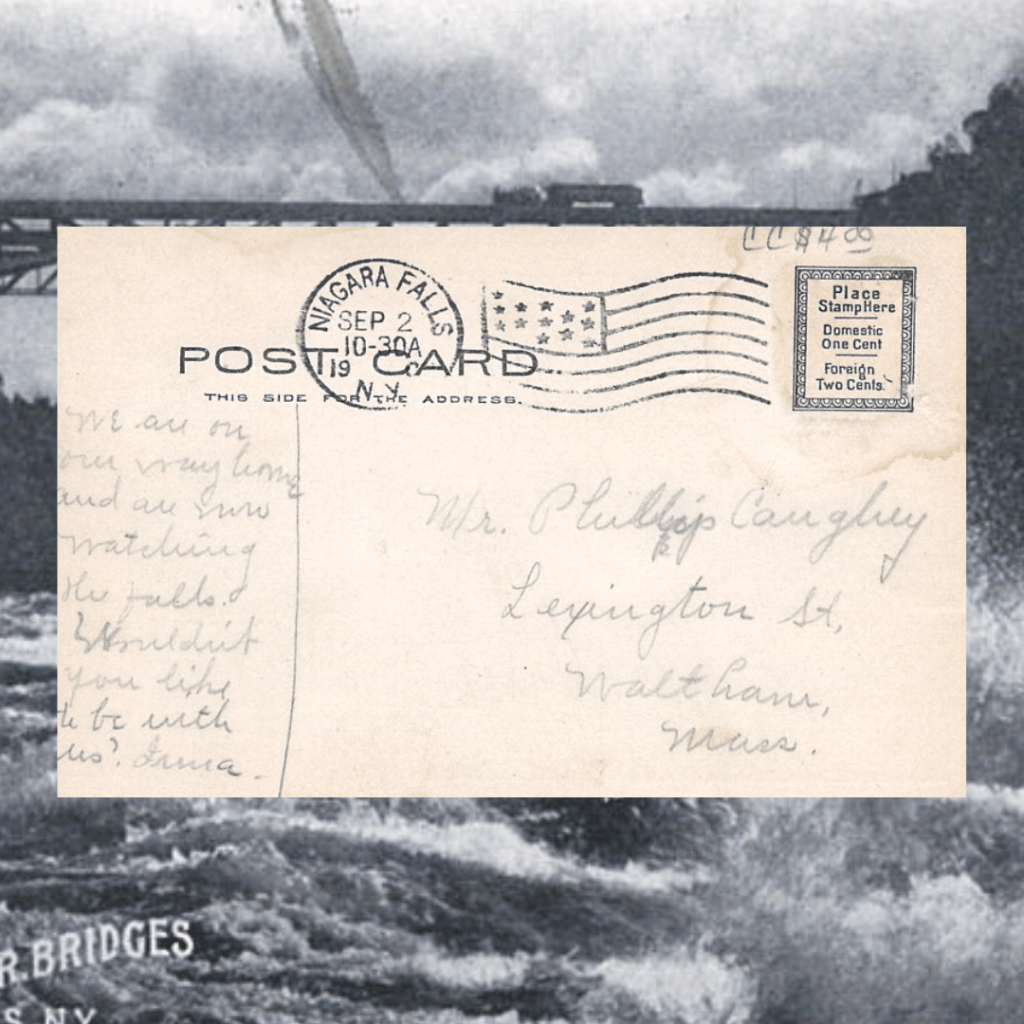 CC $4 00
NIAGARA FALLS
SEP 2
10-30A
19
N.Y.
POST CARD
THIS SIDE FOR THE ADDRESS.
Place
Stamp Here
Domestic
One Cent
Foreign
Two Cents.
We are on
our way home
and are now
watching
the falls.
Wouldn't
you like
to be with
us? Irma.
Mr. Phillip Caughey
Lexington St,
Waltham,
Mass.
R. BRIDGES
S. N.Y.